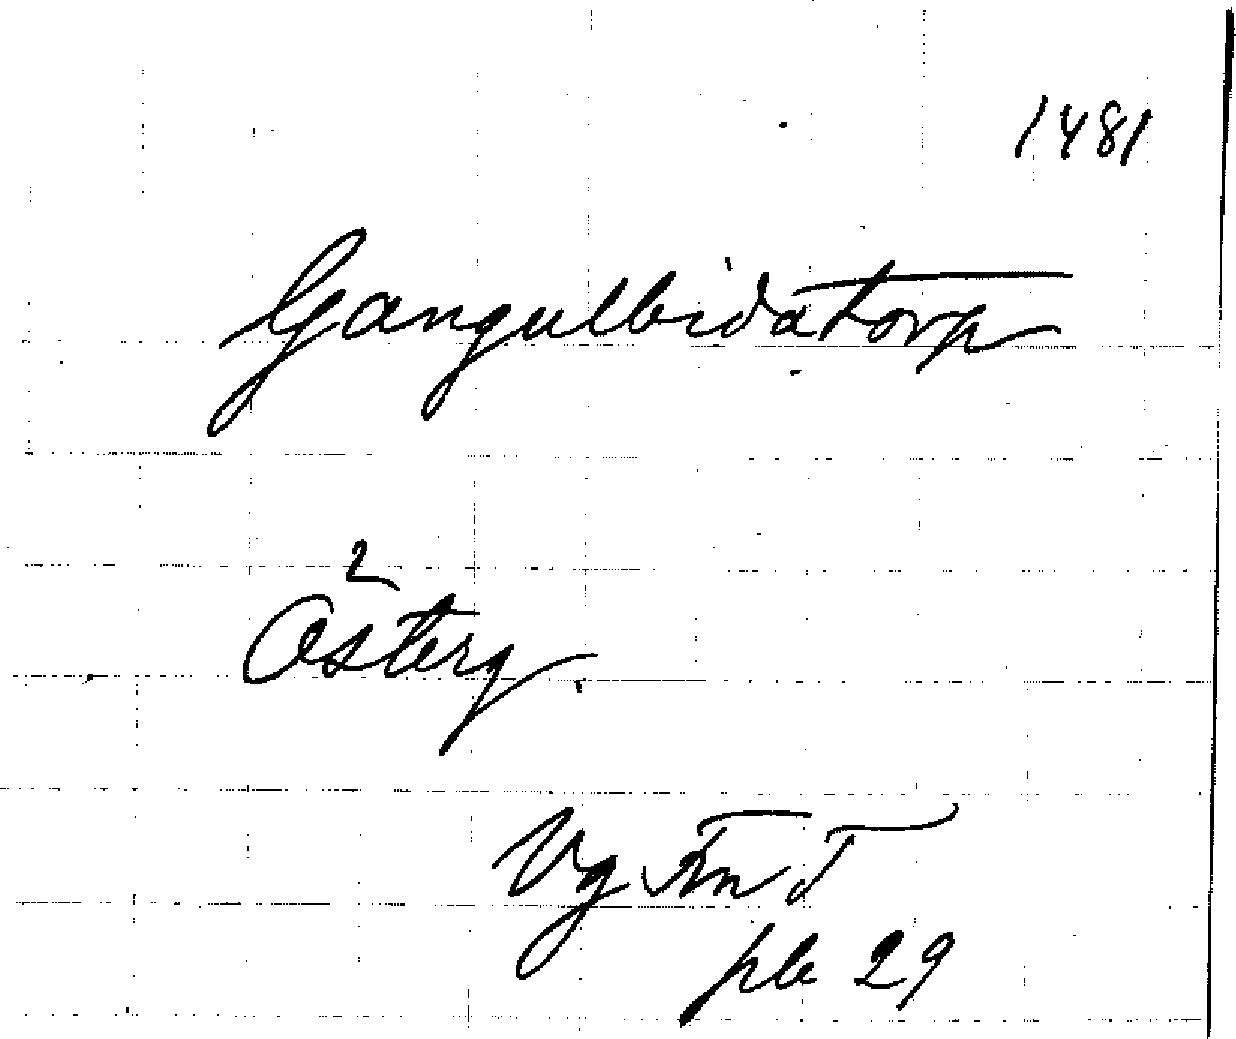 1481
Gangulbidatorp
2
Österg.
Vg Fn T
pb 29